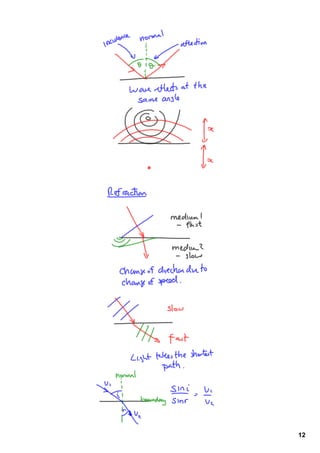 incidence normal reflection
θ θ
Wave reflects at the
same angle
x
x
Refraction
medium 1
- fast
medium 2
- slow
Change of direction due to
change of speed.
slow
fast
Light takes the shortest
path.
normal
v₁
i
boundary
r
v₂
sin i = v₁
sin r v₂
12